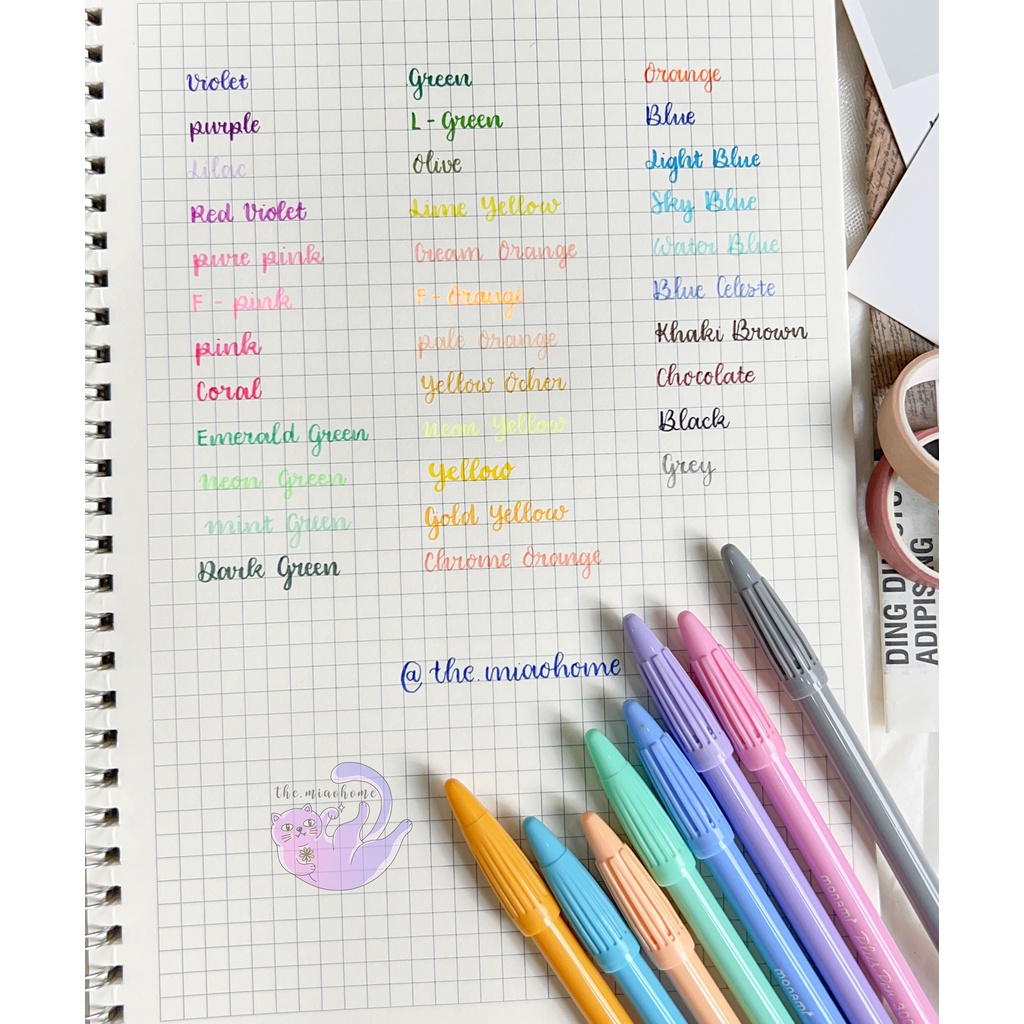 Violet
purple
Lilac
Red Violet
pure pink
F - pink
pink
Coral
Emerald Green
Neon Green
mint Green
Dark Green
Green
L - Green
Olive
Lime Yellow
Cream Orange
F - Orange
pale Orange
Yellow Ocher
Neon Yellow
Yellow
Gold Yellow
Chrome Orange
Orange
Blue
Light Blue
Sky Blue
Water Blue
Blue Celeste
Khaki Brown
Chocolate
Black
Grey
@ the.miaohome
the.miaohome
monami
monami Plus Pen 3000
ADIPIS